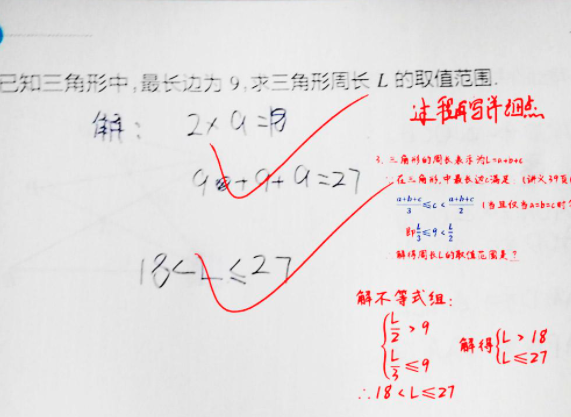 已知三角形中,最长边为9,求三角形周长L的取值范围.
解: 2×9=18
9+9+9=27
18<L≤27
过程再写详细点
3. 三角形的周长表示为L=a+b+c
∵在三角形中最长边c满足:(讲义39页
a+b+c/3≤c<a+b+c/2 (当且仅当a=b=c时
即L/3≤9<L/2
∴解得周长L的取值范围是?
解不等式组:
{L/2>9
L/3≤9
解得{L>18
L≤27
∴18<L≤27